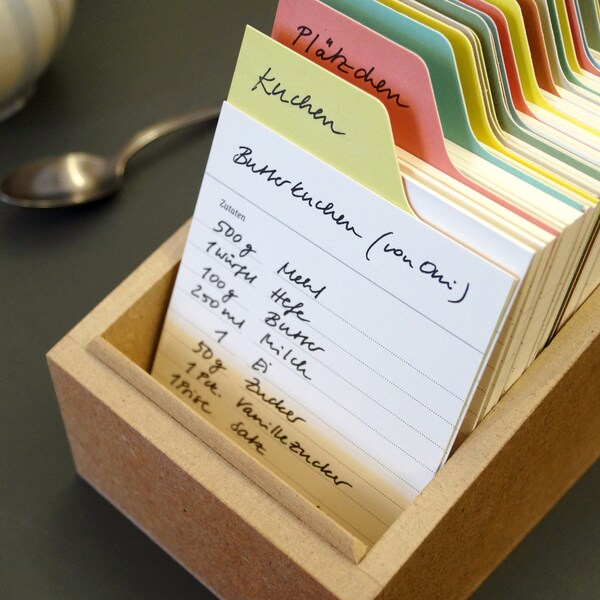 Plätzchen
Kuchen
Butterkuchen (von Omi)
Zutaten
500g Mehl
1 Würfel Hefe
100g Butter
250ml Milch
1 Ei
50g Zucker
1 Pck. Vanillezucker
1 Prise Salz